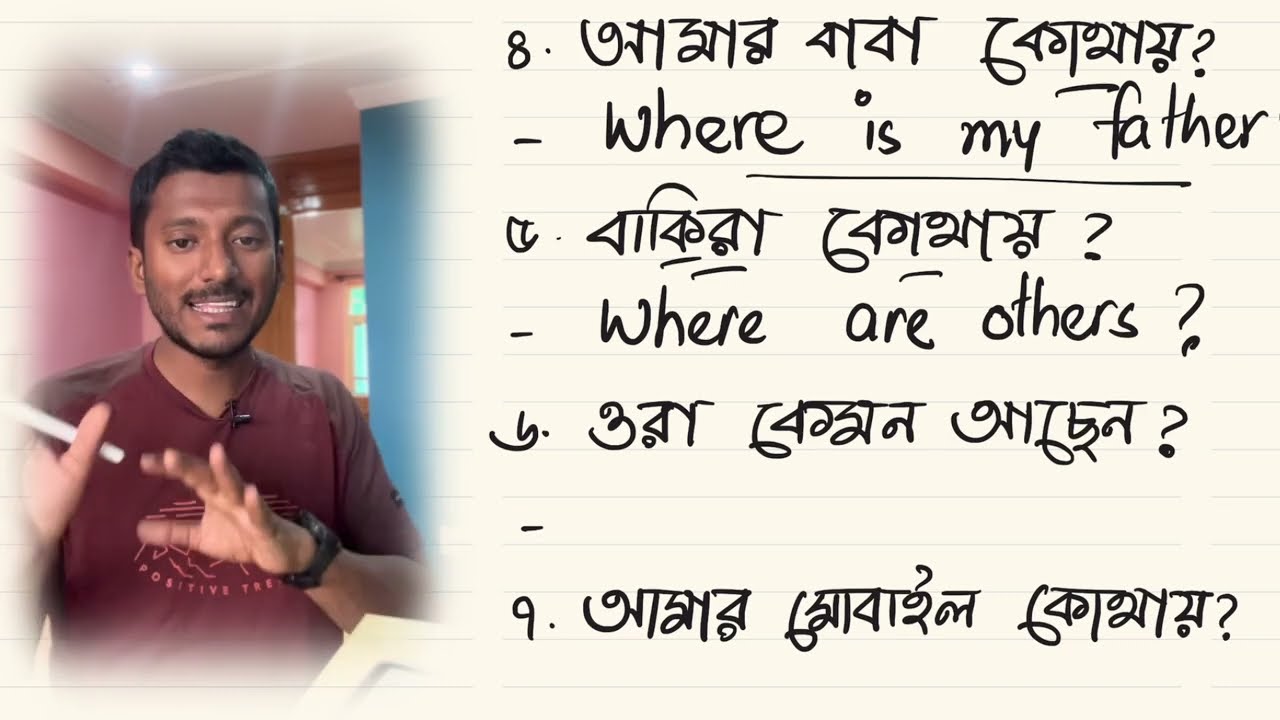 ৪. আমার বাবা কোথায়?
- Where is my father
৫. বাকিরা কোথায় ?
- Where are others ?
৬. ওরা কেমন আছেন ?
-
৭. আমার মোবাইল কোথায়?
POSITIVE